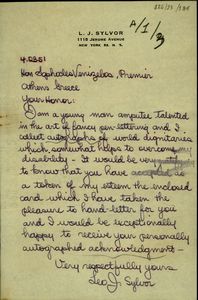 L. J. SYLVOR
1115 JEROME AVENUE
NEW YORK 52, N. Y.
A/1/3
Hon Sophocles Venizelos, Premier
Athens Greece
Your Honor:
I am a young man amputee talented
in the art of fancy pen-lettering and I
collect autographs of world dignitaries
which somewhat helps to overcome my
disability - It would be very
to know that you have accepted as
a token of my esteem the enclosed
card which I have taken the
pleasure to hand-letter for you
and I would be exceptionally
happy to receive your personally
autographed acknowledgment -
Very respectfully yours
Leo J. Sylvor